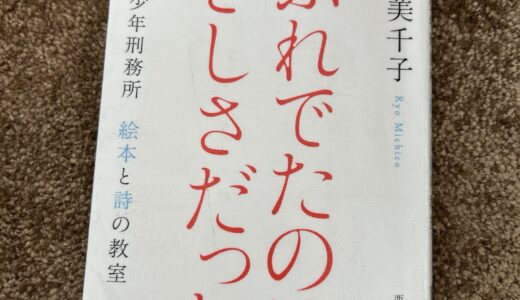 美千子
Ryo Michico
西
ふれでたの
さしさだっ
少年刑務所 絵本と詩の教室